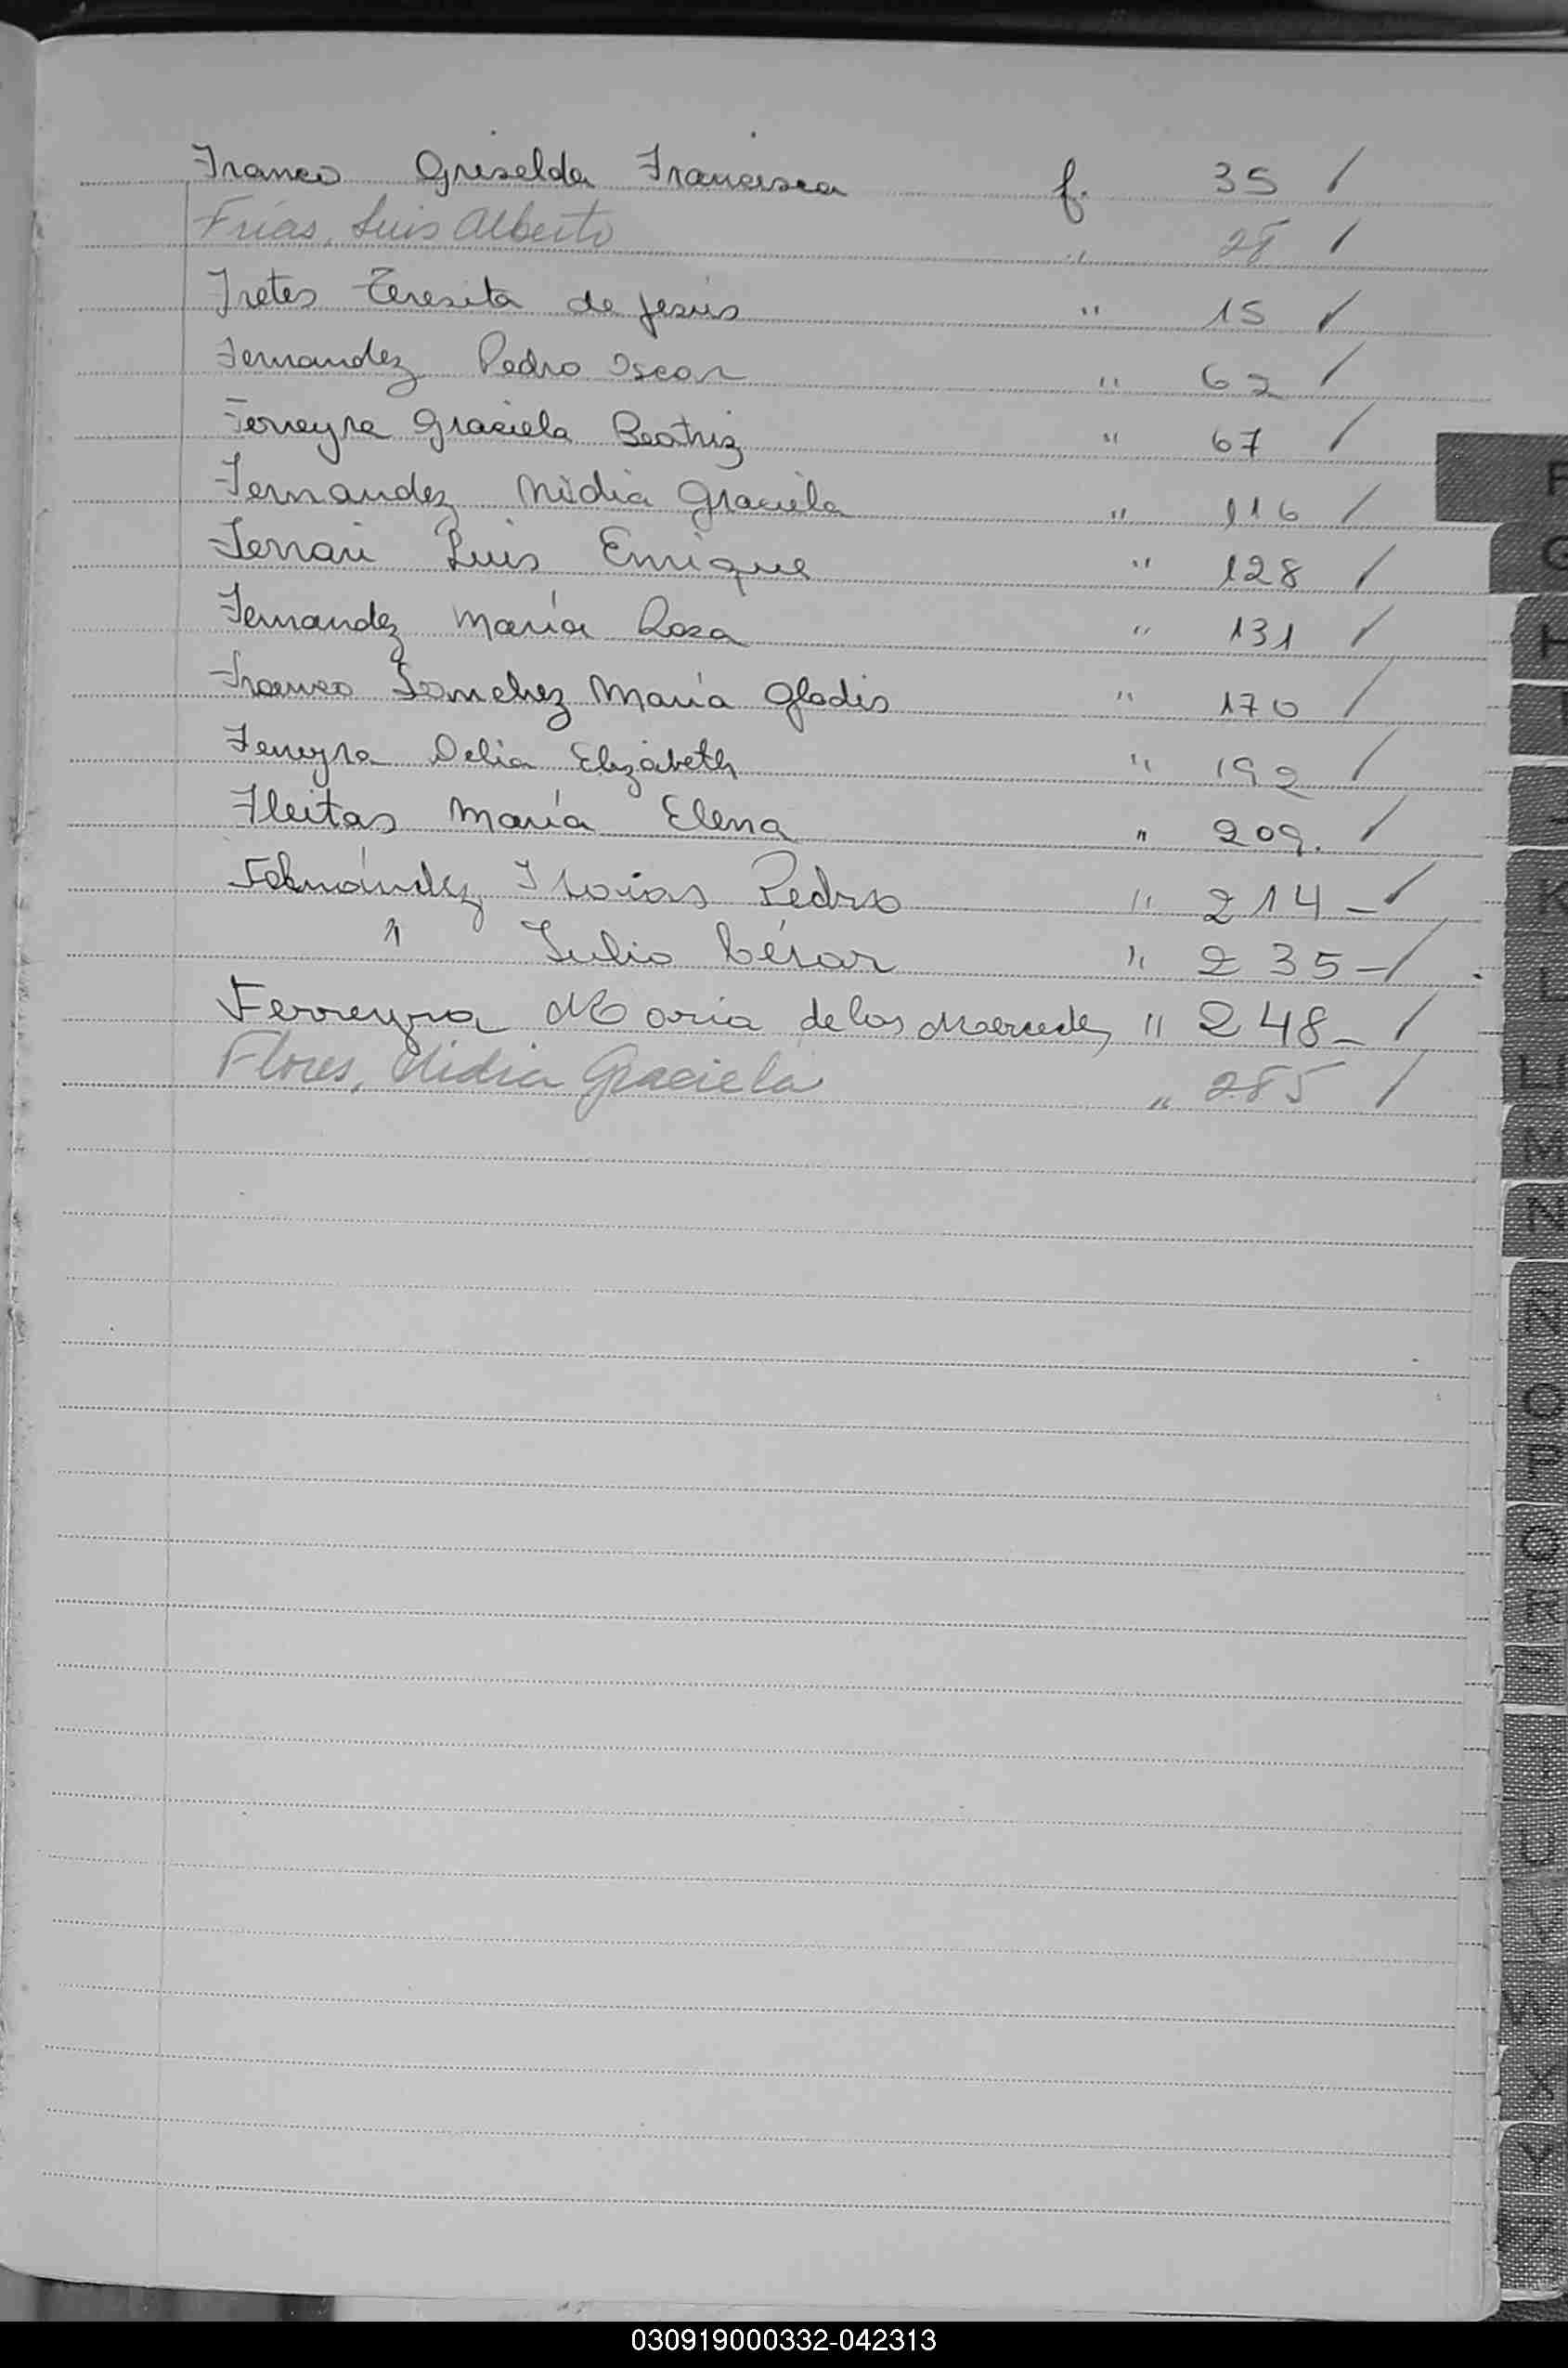 Franco Griselda Francisca f. 35 /
Frías, Luis Alberto " 28 /
Fretes Teresita de Jesús " 15 /
Fernandez Pedro Oscar " 62 /
Ferreyra Graciela Beatriz " 67 /
Fernandez Nidia Graciela " 116 /
Ferrari Luis Enrique " 128 /
Fernandez María Rosa " 131 /
Franco Sanchez María Gladis " 170 /
Ferreyra Delia Elizabeth " 192 /
Fleitas María Elena " 209. /
Fernández Isaias Pedro " 214 - /
" Julio César " 235 - /
Ferreyra María de las Mercedes " 248 - /
Flores, Nidia Graciela " 285 /
F
G
H
I
J
K
L
LL
M
N
Ñ
O
P
Q
R
S
T
U
V
W
X
Y
Z
030919000332-042313